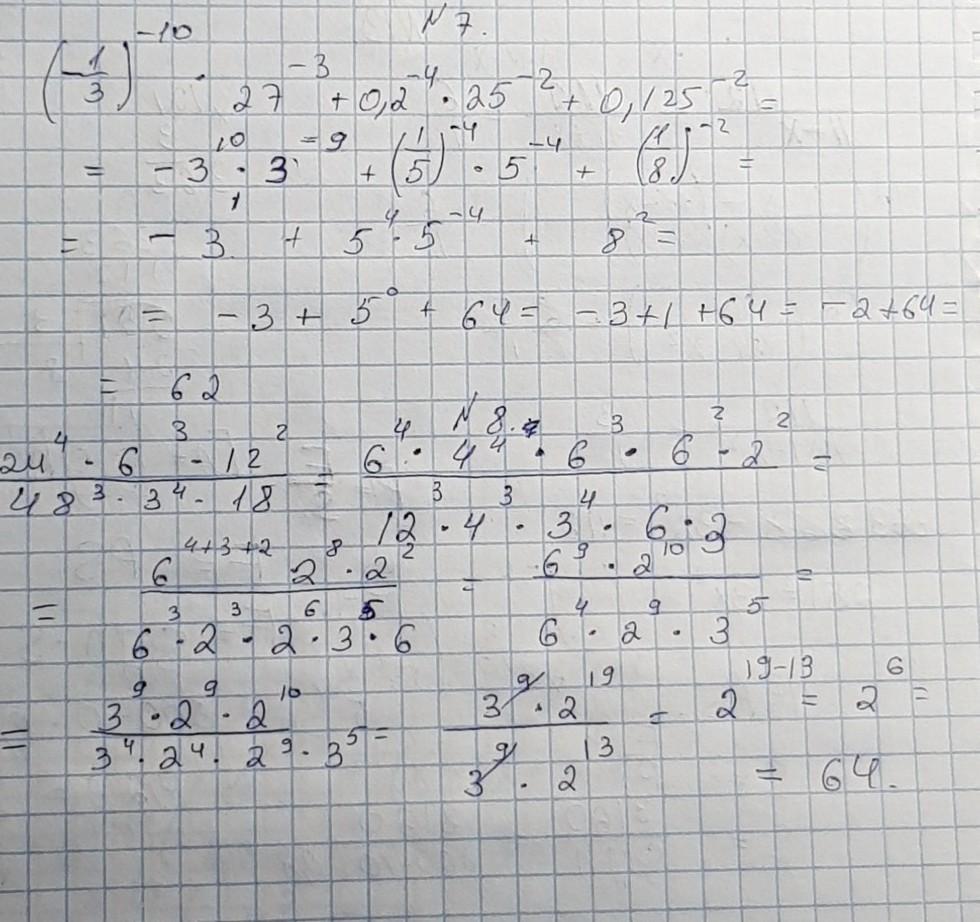 N 7.
(-1/3)^-10 · 27^-3 + 0,2^-4 · 25^-2 + 0,125^-2 =
= -3^10 · 3^-9 + (1/5)^-4 · 5^-4 + (1/8)^-2 =
= -3^1 + 5^4 · 5^-4 + 8^2 =
= -3 + 5^0 + 64 = -3+1+64 = -2+64 =
= 62
N 8.
24^4 · 6^3 · 12^2 / 48^3 · 3^4 · 18 = 6^4 · 4^4 · 6^3 · 6^2 · 2^2 / 12^3 · 4^3 · 3^4 · 6 · 3 =
= 6^4+3+2 2^8 · 2^2 / 6^3 · 2^3 · 2^6 · 3^5 · 6 = 6^9 · 2^10 / 6^4 · 2^9 · 3^5 =
= 3^9 · 2^9 · 2^10 / 3^4 · 2^4 · 2^9 · 3^5 = 3^9 · 2^19 / 3^9 · 2^13 = 2^19-13 = 2^6 =
= 64.